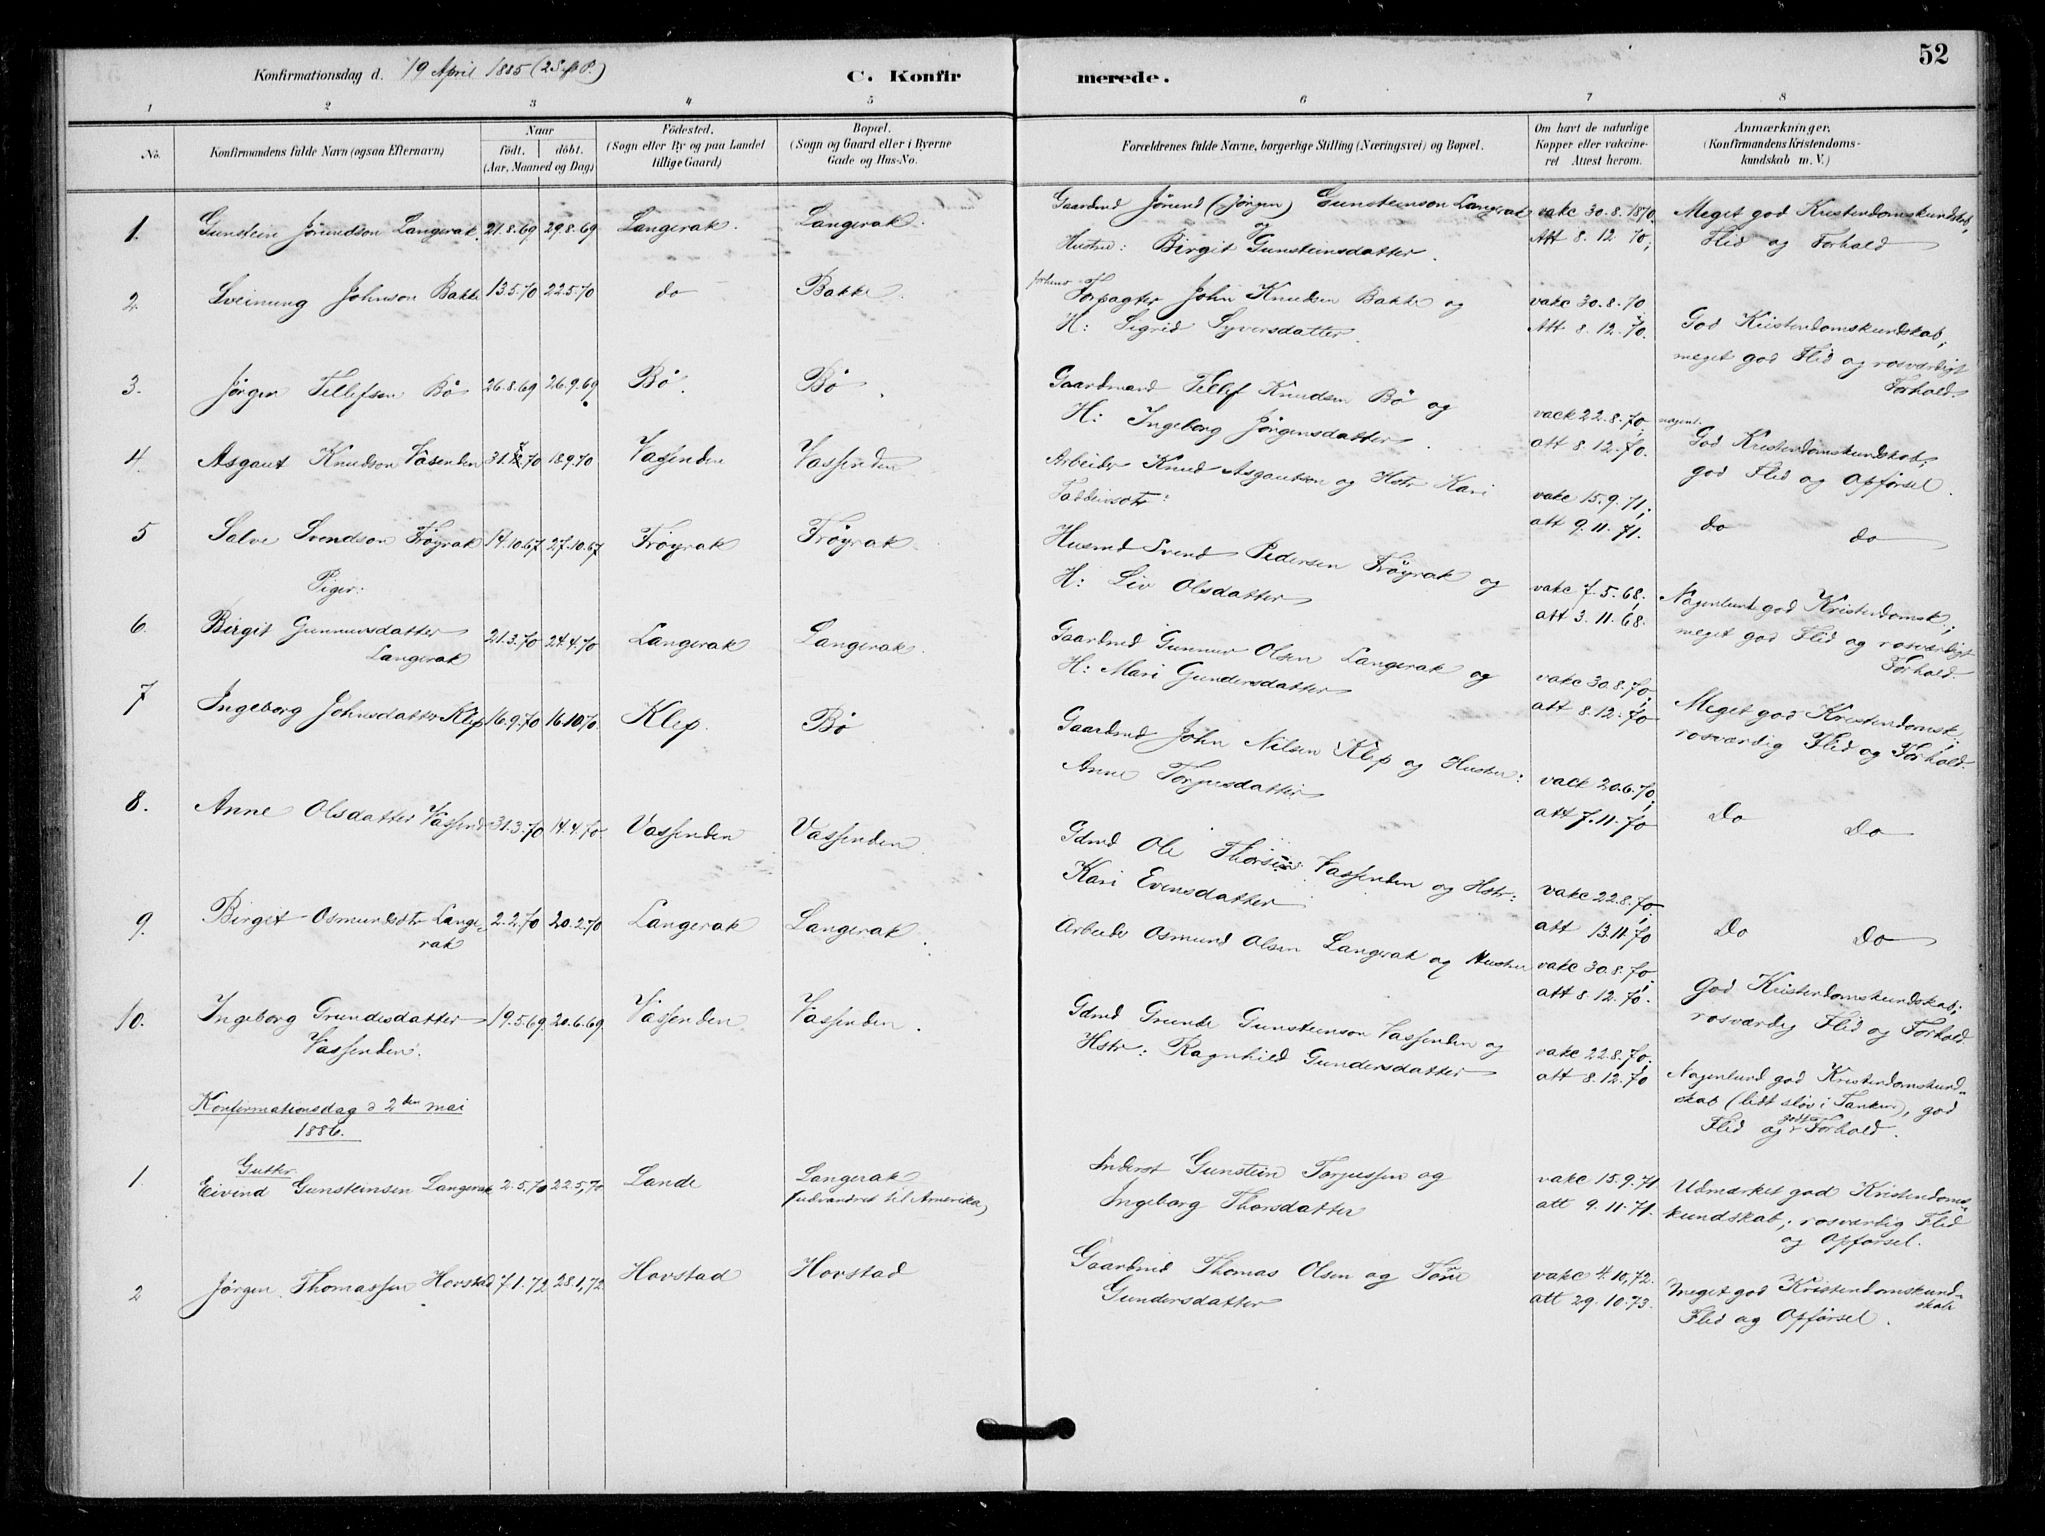 52
Konfirmationsdag d. 19 April 1885 (2 S. p. P.)
C. Konfirmerede.
1 2 3 4 5 6 7 8
No.
Konfirmandens fulde Navn (ogsaa Efternavn)
Naar
födt. döbt.
(Aar, Maaned og Dag)
Födested.
(Sogn eller By og paa Landet
tillige Gaard)
Bopæl.
(Sogn og Gaard eller i Byerne
Gade og Hus-No.
Forældrenes fulde Navne, borgerlige Stilling (Næringsvei) og Bopæl.
Om havt de naturlige
Kopper eller vakcine-
ret Attest herom.
Anmærkninger.
(Konfirmandens Kristendoms-
kundskab m. V.)
1. Gunstein Jørundson Langerak. 21.8.69 29.8.69 Langerak. Langerak. Gaardmd Jørund (Jørgen) Gunsteinson Langrak vakc 30.8.1870, Meget god Kristendomskundskab,
og
Hustru: Birgit Gunsteinsdatter. Att 8.12 70, Flid og Forhold
2. Sveinung Johnson Bakke 13.5.70 22.5.70 do Bakke. forhenv. Forpagter John Knudsen Bakke og vakc 30.8.70
H: Sigrid Syversdatter. Att 8.12.70. God Kristendomskundskab,
meget god Flid og rosværdigt
Forhold
3. Jørgen Tellefsen Bö 26.8.69 26.9.69 Bö. Bö. Gaardmand Tellef Knudsen Bö og vack 22.8.70,
H: Ingeborg Jørgensdatter. att 8.12.70. nogenl. God Kristendomskundskab;
god Flid og Opførsel.
4. Asgaut Knudson Våsenden 31. 70 18.9.70 Vassenden Vassenden Arbeider Knud Asgautson og Hstr Kari vakc 15.9.71,
att 9.11.71. do do
5 Salve Svendson Fröyrak 14.10.67 27.10.67 Fröyrak Fröyrak. Husmd Svend Pedersen Fröyrak og vakc 7.5.68,
H: Liv Olsdatter att 3.11.68. Nogenlunde god Kristendomsk,
meget god Flid og rosværdigt
Forhold.
Piger:
6. Birgit Gunnursdatter
Langerak 21.3.70 24.4.70 Langerak Langerak. Gaardmd Gunnur Olsen Langerak og vakc 30.8.70,
H: Mari Gundersdatter att 8.12.70 Meget god Kristendomsk,
rosværdig Flid og Forhold.
7 Ingeborg Johnsdatter Klep 16.9.70 16.10.70. Klep. Bö Gaardmd John Nilsen Klep og Hustru:
Anne Torjusdatter vack 20.6.70,
att 7.11.70 Do Do
8. Anne Olsdatter Vassend 31.3.70 14.4.70 Vassenden Vassenden. Gdmd Ole Vassenden og Hstr:
Kari Evensdatter vakc 22.8.70,
att 13.11.70 Do Do
9. Birget Osmundsdtr Lange-
rak 2.2.70 20.2.70 Langerak Langerak. Arbeider Osmund Olsen Langrak og Hustru vakc 30.8.70,
att 8.12.70. God Kristendomskundskab;
rosværdig Flid og Forhold.
10. Ingeborg Grundesdatter
Vassenden. 19.5.69. 20.6.69 Vassenden Vassenden. Gdmd Grunde Gunsteinson Vassenden og
Hstr: Ragnhild Gundersdatter vakc 22.8.70,
att 8.12.70 Nogenlund god Kristendomskund-
skab (lidt sløv i Tanken), god
Flid og godt Forhold.
Konfirmationsdag d 2den mai
1886.
Gutter.
1. Eivind Gunsteinsen Langerak 2.5.70 22.5,70 Lande Langerak
(udvandret til Amerika) Inderst Gunstein Torjussen og
Ingeborg Thorsdatter vakc 15.9.71
att 9.11.71. Udmærket god Kristendoms-
kundskab; rosværdig Flid
og Opførsel.
2 Jörgen Thomassen Hovstad 7.1.72 28.1,72. Hovstad Hovstad Gaardmd Thomas Olsen og Tone
Gundersdatter vakc 4.10,72.
att 29.10.73. Meget god Kristendomskund-
skab
Flid og Opførsel.